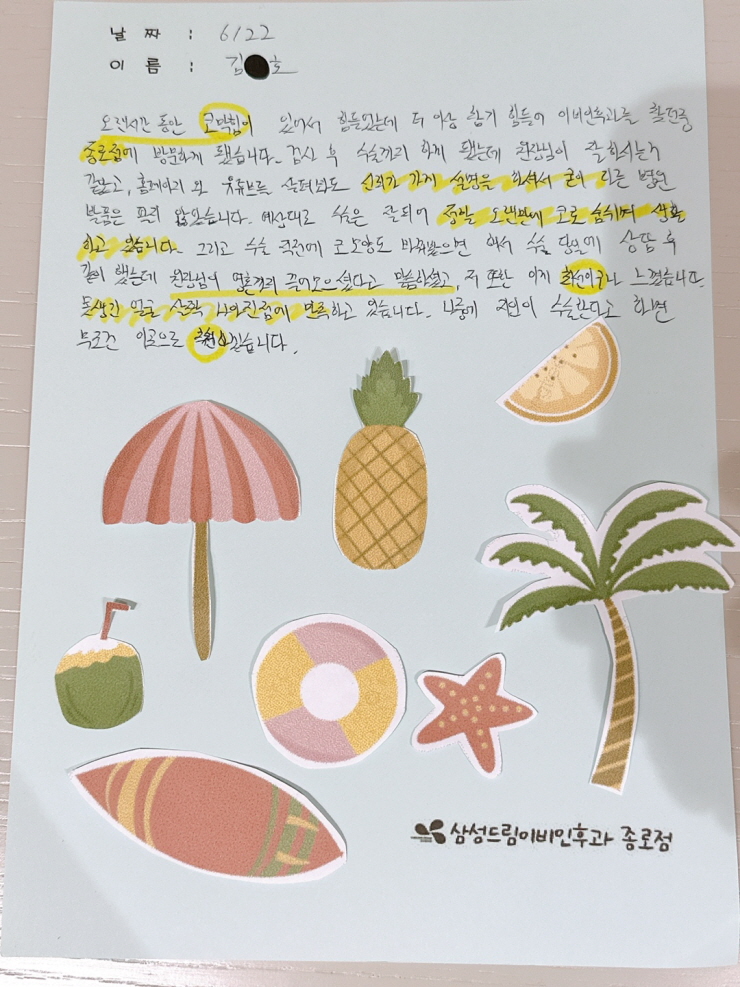 날 짜 : 6/22
이 름 : 김 호
오랜시간 동안 코막힘이 있어서 힘들었는데 더 이상 참기 힘들어 이비인후과를 찾던중
종로점에 방문하게 됐습니다. 검사 후 수술까지 하게 됐는데 원장님이 잘하시는거
같았고, 홈페이지 와 유튜브로 살펴봐도 신뢰가 가게 설명을 하셔서 굳이 다른 병원
발품은 팔지 않았습니다. 예상대로 수술은 잘되어 정말 오랜만에 코로 숨쉬며 생활
하고 있습니다. 그리고 수술 직전에 코모양도 바꿔봤으면 해서 수술 당일에 상담 후
같이 했는데 원장님이 영혼까지 끌어모으셨다고 말씀하셨고, 저 또한 이게 최선이구나 느꼈습니다.
동생간 얼굴 산적 나아진점에 만족하고 있습니다. 나중에 지인이 수술한다고 하면
무조건 이곳으로 추천하겠습니다.
삼성드림이비인후과 종로점